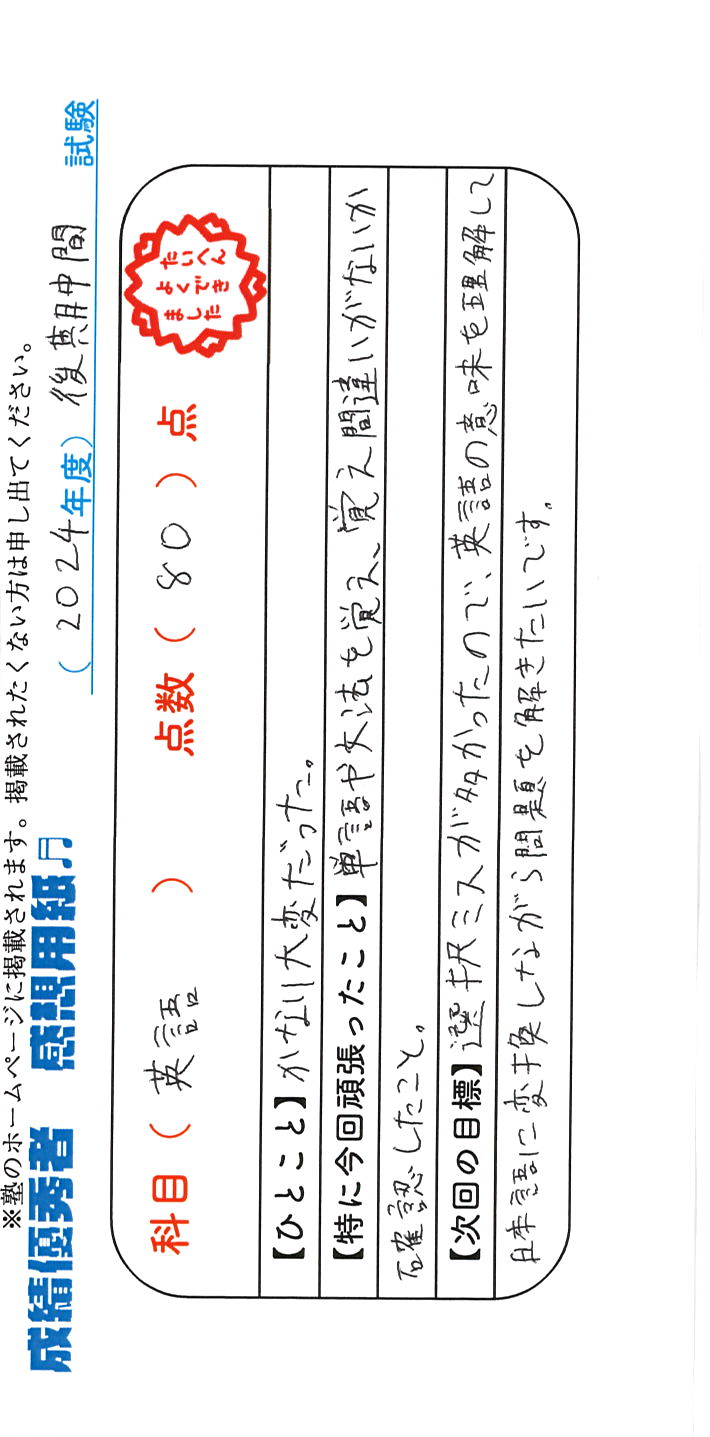 ※塾のホームページに掲載されます。掲載されたくない方は申し出てください。
成績優秀者 感想用紙♫ (2024年度) 後期中間 試験
科目 ( 英語 ) 点数 ( 80 ) 点
たいへん
よくでき
ました
【ひとこと】かなり大変だった。
【特に今回頑張ったこと】単語や文法を覚え、覚え間違いがないか
確認したこと。
【次回の目標】選択ミスが多かったので、英語の意味を理解して
日本語に変換しながら問題を解きたいです。